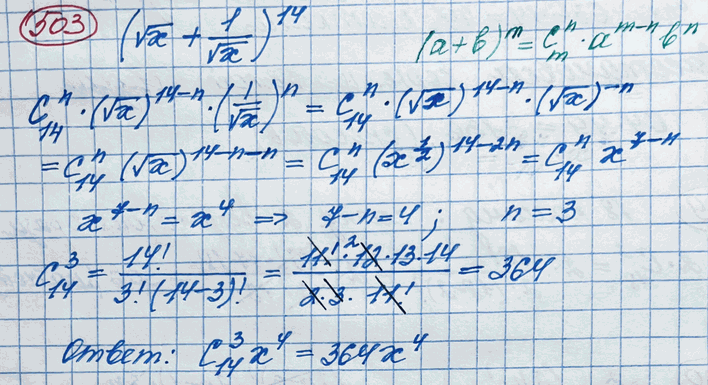 503 (√x + 1/√x)^14
(a+b)^m = C_m^n · a^(m-n) b^n
C_14^n · (√x)^(14-n) · (1/√x)^n = C_14^n · (√x)^(14-n) · (√x)^(-n)
= C_14^n (√x)^(14-n-n) = C_14^n (x^(1/2))^(14-2n) = C_14^n x^(7-n)
x^(7-n) = x^4 => 7-n=4; n=3
C_14^3 = 14!/(3!(14-3)!) = (11!·12·13·14)/(2·3·11!) = 364
Ответ: C_14^3 x^4 = 364x^4